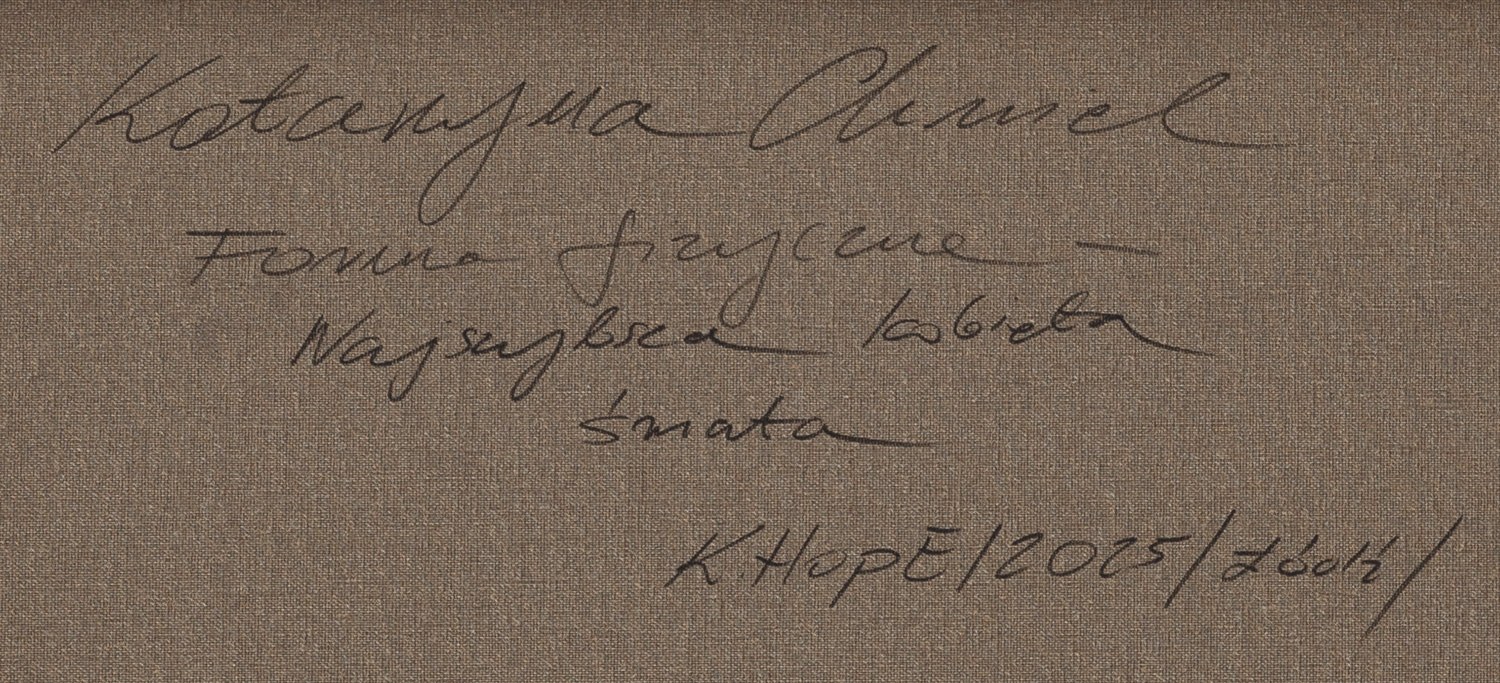 Katarzyna Chmiel
Forma fizyczna –
Najszybsza kobieta
świata
K.HopE/2025/